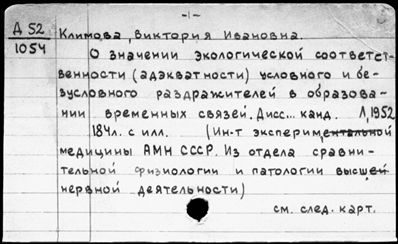 -1-
Д 52
1054
Климова, Виктория Ивановна.
О значении экологической соответст-
венности (адэкватности) условного и бе-
зусловного раздражителей в образова-
нии временных связей. Дисс... канд. Л, 1952
184л. с илл. (Ин-т экспериментальной
медицины АМН СССР. Из отдела сравни-
тельной физиологии и патологии высшей
нервной деятельности)
см. след. карт.